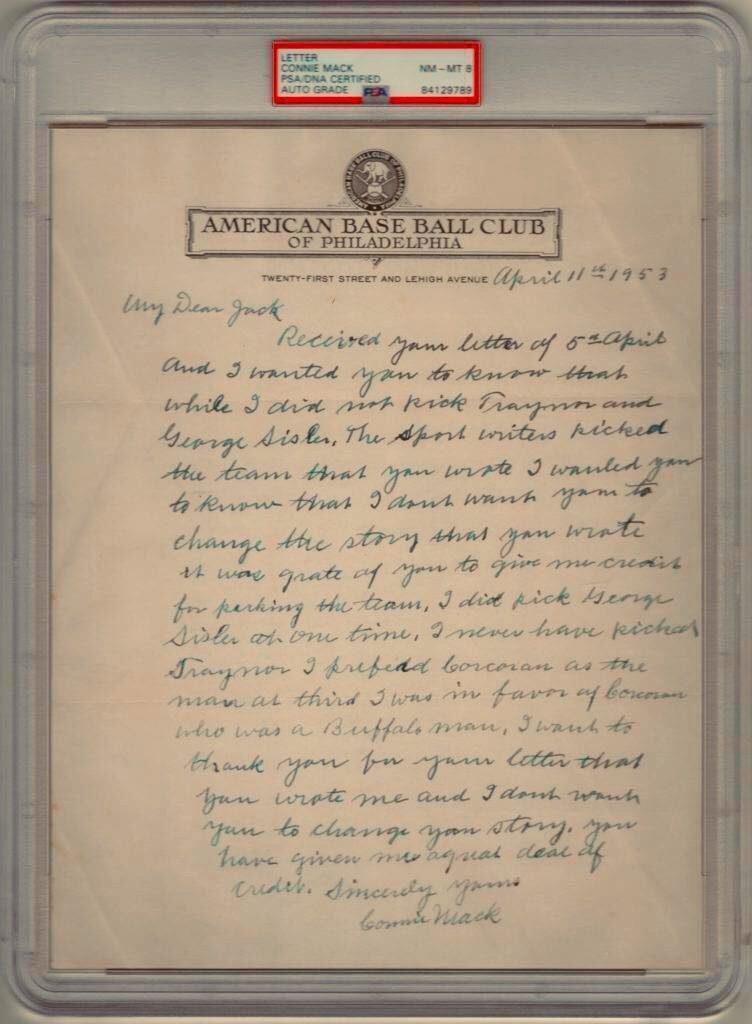 LETTER
CONNIE MACK NM - MT 8
PSA/DNA CERTIFIED
AUTO GRADE PSA 84129789
AMERICAN BASE BALL CLUB OF PHILADELPHIA
AMERICAN BASE BALL CLUB
OF PHILADELPHIA
TWENTY-FIRST STREET AND LEHIGH AVENUE April 11th 1953
My Dear Jack
Received your letter of 5th April
And I wanted you to know that
while I did not kick Traynor and
George Sisler, The sport writers kicked
the team that you wrote I wanted you
to know that I dont want you to
change the story that you wrote
it was grate of you to give me credit
for parking the team, I did pick George
Sisler at one time, I never have picked
Traynor I prefedd Corcoran as the
man at third I was in favor of Corcoran
who was a Buffalo man, I want to
thank you for your letter that
you wrote me and I dont want
you to change your story. you
have given me a great deal of
credit. Sincerely yours
Connie Mack